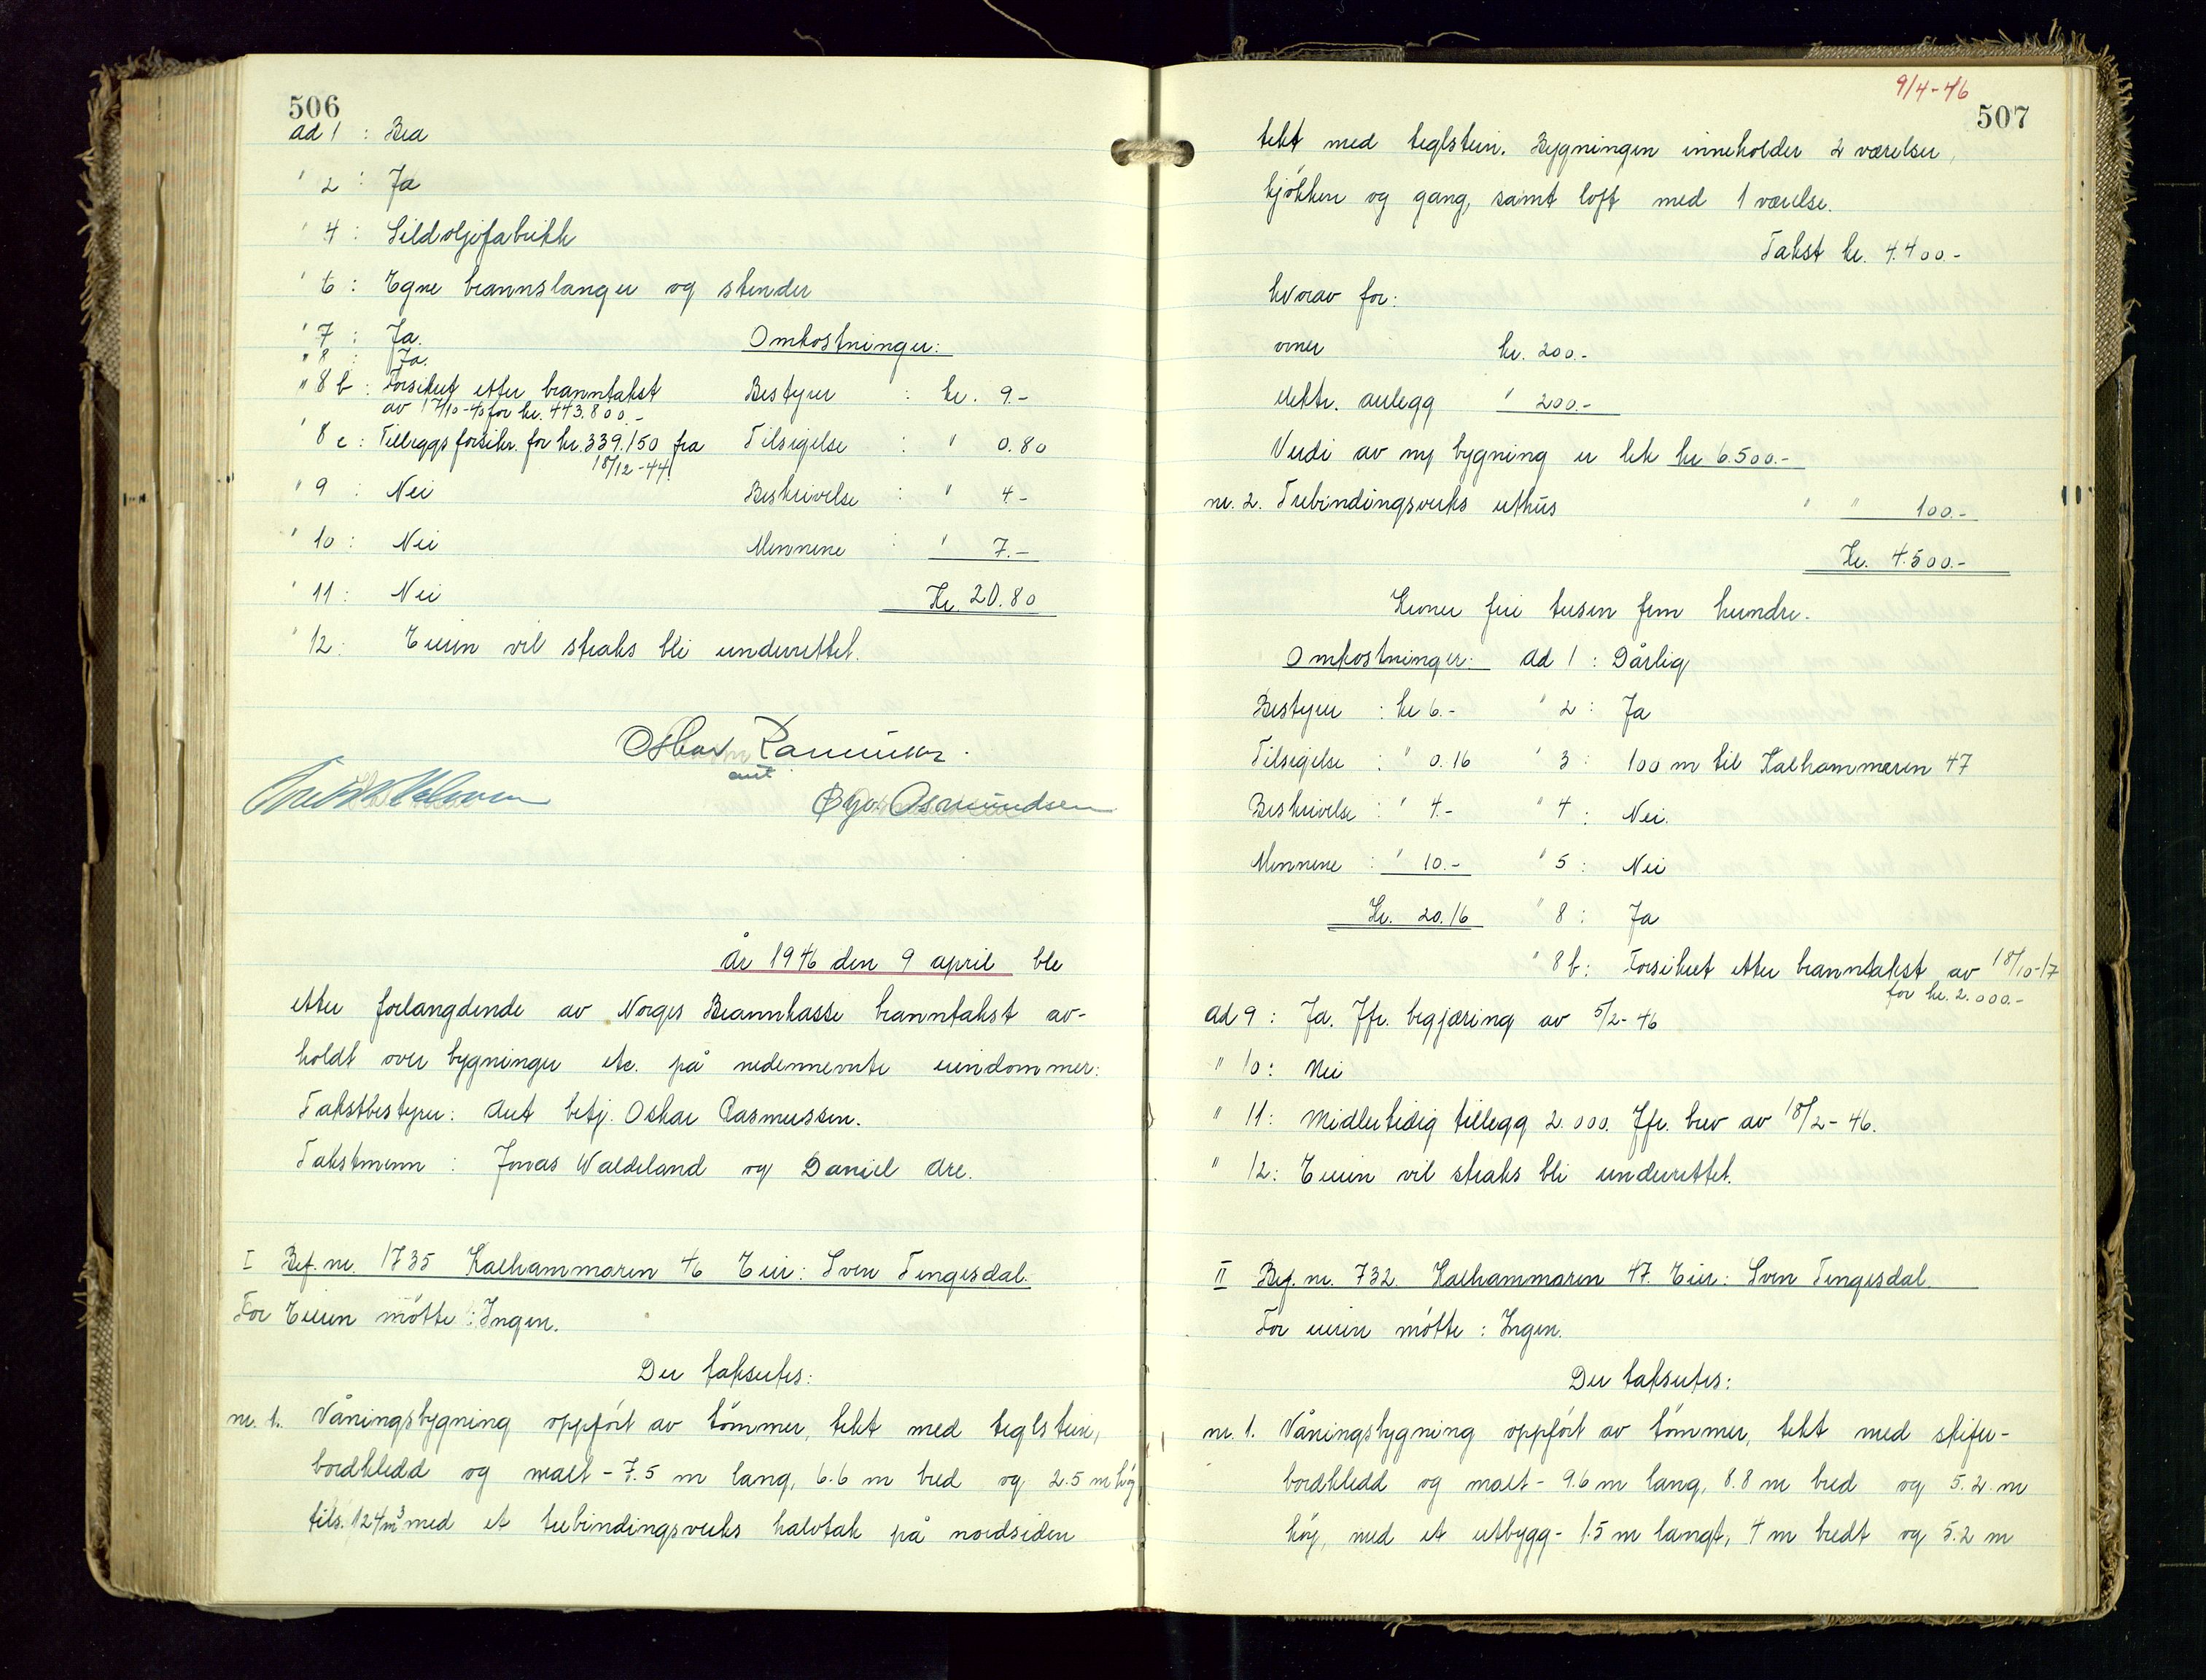 506
ad 1 : Bra
" 2 : Ja
" 4 : Sildoljefabrikk
" 6 : Egne brannslanger og stender
" 7 : Ja.
" 8 : Ja.
Omkostninger:
" 8 b : Forsikret etter branntakst
av 17/10-40 for kr. 443.800.-
Bestyrer : kr. 9.-
" 8 c : Tilleggsforsikr. for kr. 339.150 fra
18/12-44.
Tilsigelse : " 0.80
" 9 : Nei Beskrivelse : " 4.-
" 10 : Nei Mennene : " 7.-
" 11 : Nei Kr. 20.80
" 12 : Eieren vil straks bli underrettet.
Oskar Rasmussen.
aut
Asmundsen
År 1946 den 9 april ble
etter forlangdende av Norges Brannkasse branntakst av-
holdt over bygninger etc. på nedennevnte eiendommer:
Takstbestyrer: Aut betj. Oskar Rasmussen.
Takstmenn : Jonas Waldeland og Daniel Are.
I Bef. nr. 1735 Kalhammaren 46 Eier: Sven Tengesdal.
For Eieren møtte : Ingen.
Der takseres:
nr. 1. Våningsbygning oppført av tømmer, tekt med teglstein,
bordkledd og malt - 7.5 m lang, 6.6 m bred og 2.5 m høg
tils. 124 m³ med et trebindingsverks halvtak på nordsiden
9/4-46
507
tekt med teglstein. Bygningen inneholder 2 værelser,
kjøkken og gang, samt loft med 1 værelse.
Takst kr. 4.400.-
hvorav for:
ovner kr. 200.-
elektr. anlegg " 200.-
Verdi av ny bygning er lik kr 6.500.-
nr. 2. Trebindingsverks uthus " " 100.-
Kr. 4.500.-
Kroner fire tusen fem hundre.
Omkostninger: ad 1 : Dårlig
Bestyrer : kr 6.- " 2 : Ja
Tilsigelse : " 0.16 " 3 : 100 m til Kalhammaren 47
Beskrivelse : " 4.- " 4 : Nei.
Mennene : " 10.- " 5 : Nei
Kr. 20.16 " 8 : Ja
" 8 b : Forsikret etter branntakst av 18/10-17
for kr. 2.000.-
ad 9 : Ja. Jfr. begjæring av 5/2-46
" 10 : Nei
" 11 : Midlertidig tillegg 2.000. Jfr. brev av 18/2-46.
" 12 : Eieren vil straks bli underrettet.
II Bef. nr. 732. Kalhammaren 47. Eier: Sven Tengesdal.
For eieren møtte : Ingen.
Der takseres:
nr. 1. Våningsbygning oppført av tømmer, tekt med skifer-
bordkledd og malt - 9.6 m lang, 8.8 m bred og 5.2 m
høg, med et utbygg - 1.5 m langt, 4 m bredt og 5.2 m